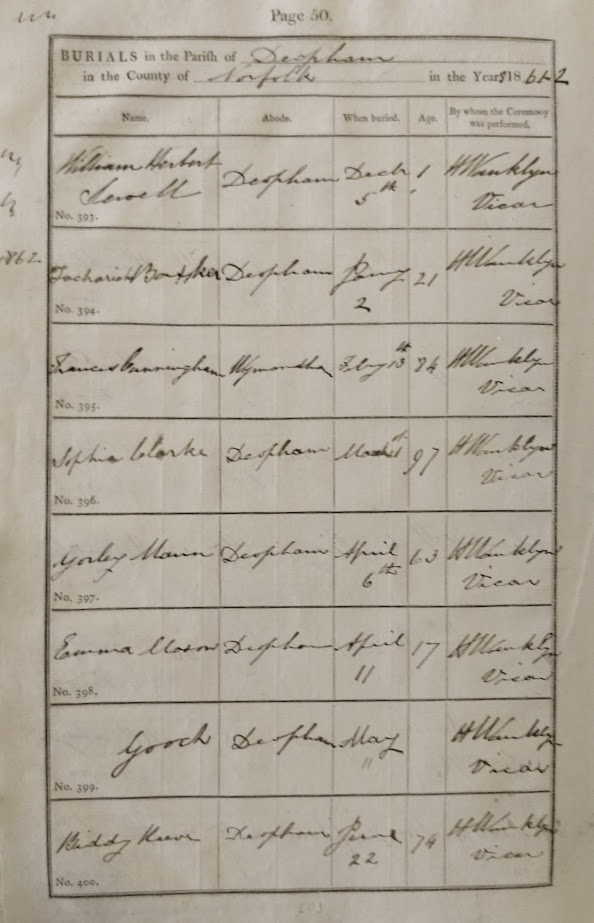 Page 50.
BURIALS in the Parish of Deopham
in the County of Norfolk in the Year 1861-2
Name. Abode. When buried. Age. By whom the Ceremony was performed.
William Herbert Sewell Deopham Decbr 5th 1 H Wanklyn Vicar
No. 393.
1862
Deopham Jany 2 21 H Wanklyn Vicar
No. 394.
Frances Cunningham Wymondham Feby 13th 84 H Wanklyn Vicar
No. 395.
Sophia Clarke Deopham March 97 H Wanklyn Vicar
No. 396.
Mann Deopham April 6th 63 H Wanklyn Vicar
No. 397.
Emma Deopham April 11 17 H Wanklyn Vicar
No. 398.
Gooch Deopham May 11 H Wanklyn Vicar
No. 399.
Biddy Reeve Deopham June 22 74 H Wanklyn Vicar
No. 400.